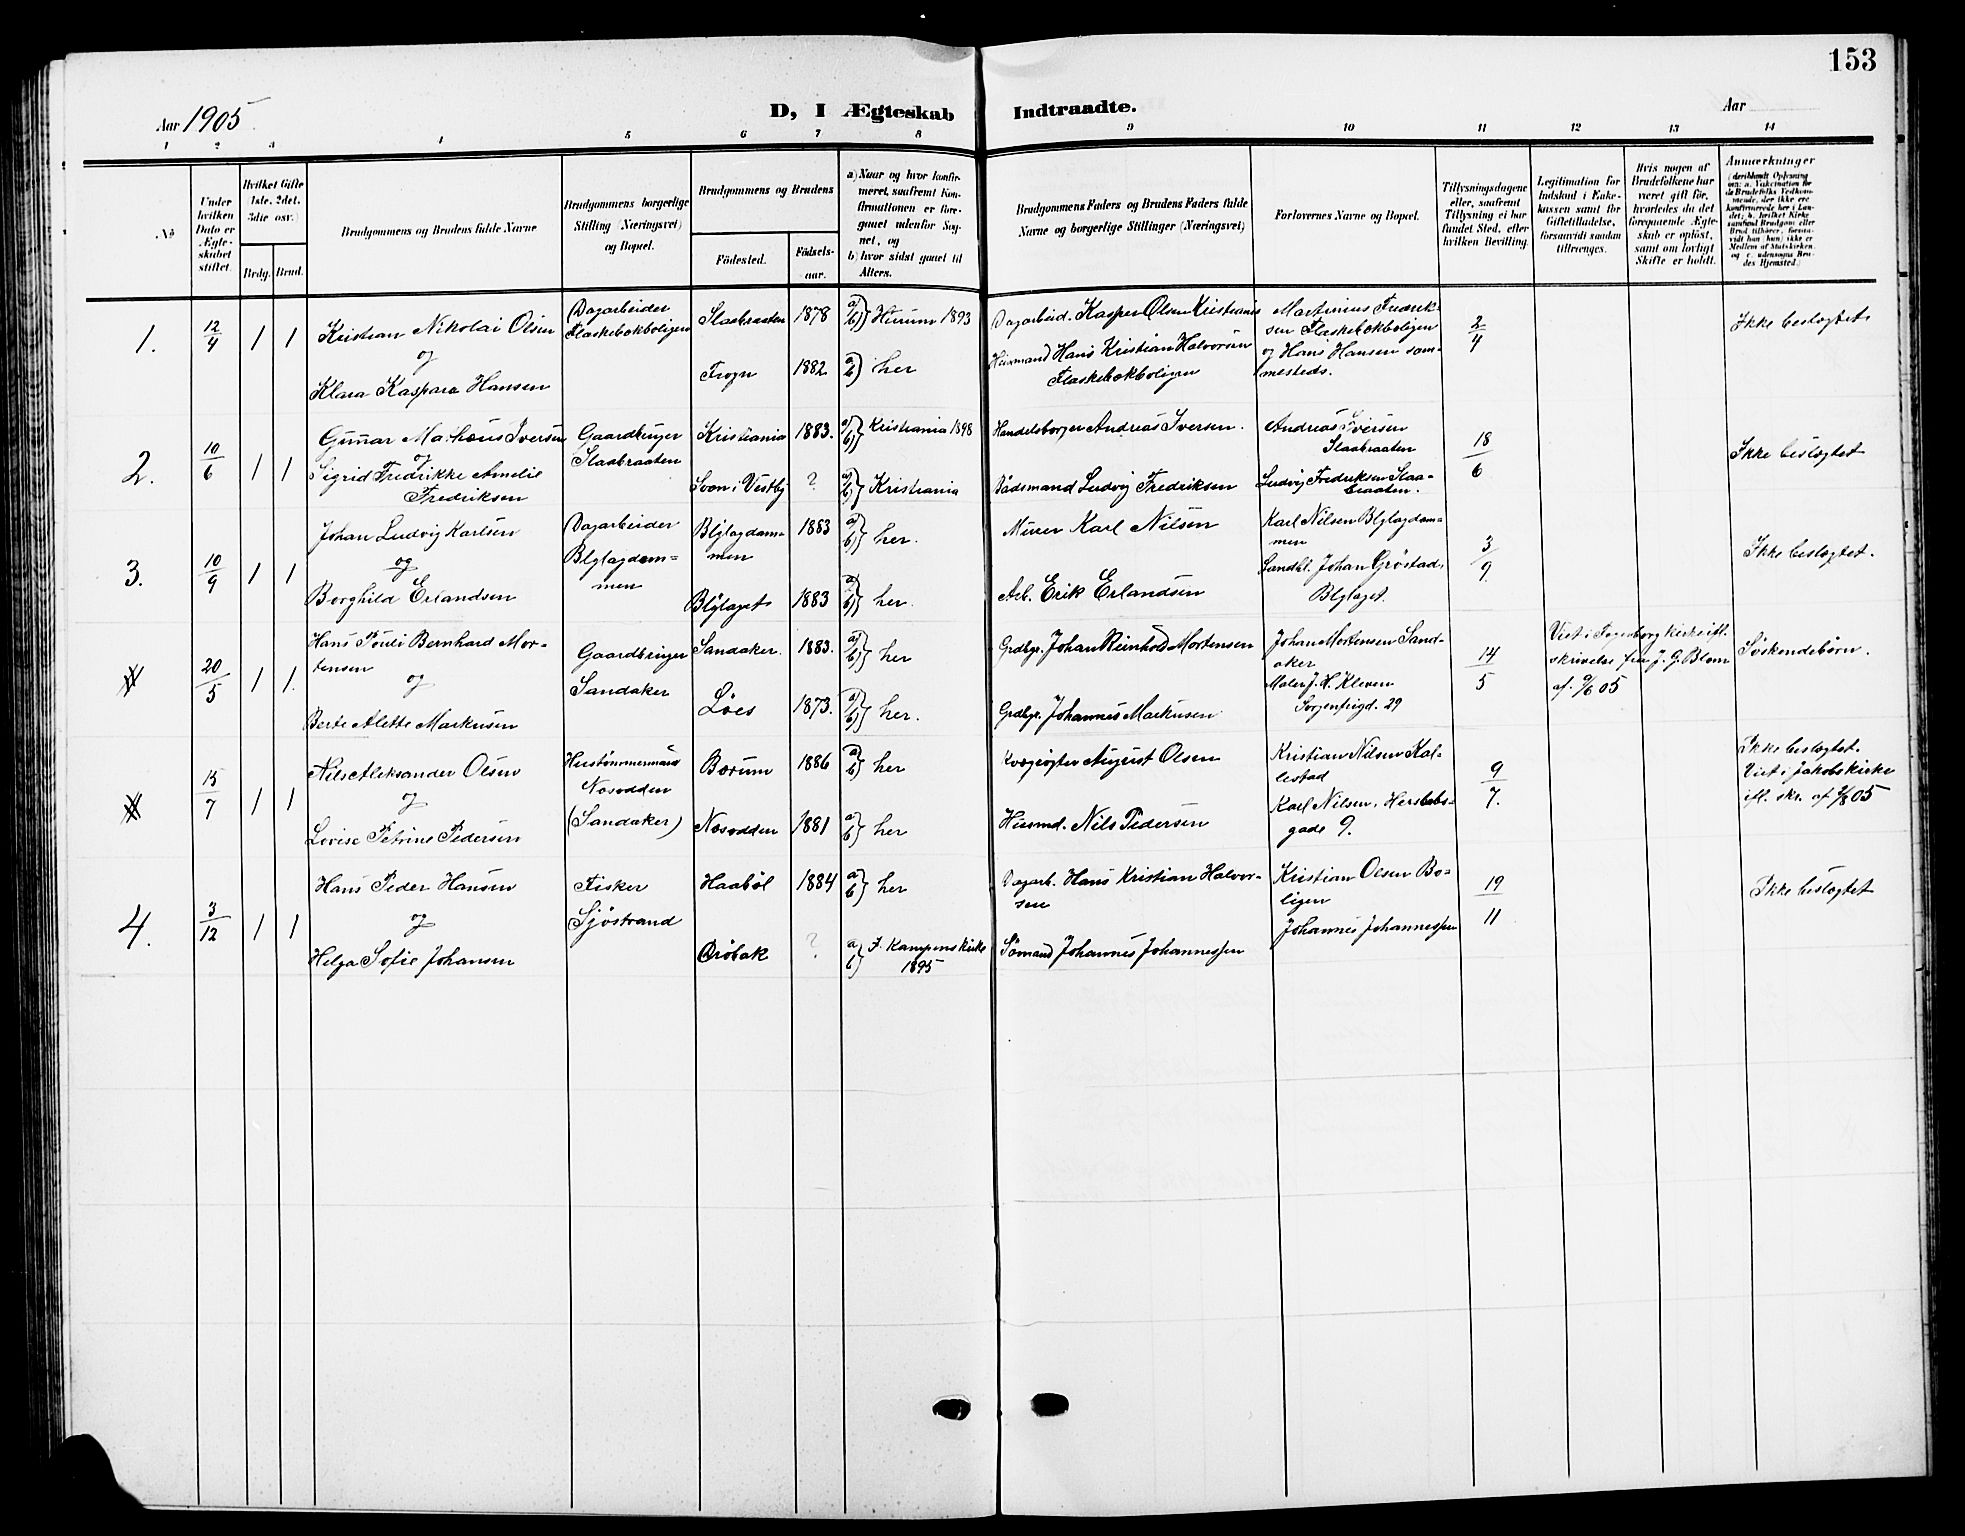 153
Aar 1905
D, I Ægteskab Indtraadte.
Aar
1 2 3 4 5 6 7 8 9 10 11 12 13 14
No
Under hvilken Dato er Ægteskabet stiftet.
Hvilket Gifte 1ste, 2det, 3die osv.)
Brdg. Brud.
Brudgommens og Brudens fulde Navne
Brudgommens borgerlige Stilling (Næringsvei) og Bopæl.
Brudgommens og Brudens
Födested.
Födsels-aar.
a) Naar og hvor konfirmeret, saafremt Konfirmationen er foregaaet udenfor Sognet, og
b) hvor sidst gaaet til Alters.
Brudgommens Faders og Brudens Faders fulde Navne og borgerlige Stillinger (Næringsvei)
Forlovernes Navne og Bopæl.
Tillysningsdagene eller, saafremt Tillysning ei har fundet Sted, efter hvilken Bevilling.
Legitimation for Indskud i Enkekassen samt for Giftetilladelse, forsaavidt saadan tiltrænges.
Hvis nogen af Brudefolkene har været gift før, hvorledes da det foregaaende Ægteskab er oplöst, samt om lovligt Skifte er holdt.
Anmærkninger
1. 12/4 1 1
Kristian Nikolai Olsen
og
Klara Kaspara Hansen
Dagarbeider
Flaskebækboligen
Slaabraaten 1878 a/b) Hurum 1893
Frogn 1882 a/b) her
Dagarbeid. Kasper Olsen Kristiania
Husmand Hans Kristian Halvorsen
Flaskebækboligen
Martinius Fredrik-
sen Flaskebækboligen
og Hans Hansen sam-
mesteds.
2/4
Ikke beslægtet
2. 10/6 1 1
Gunnar Mathæus Iversen
og
Sigrid Fredrikke Amelie
Fredriksen
Gaardbruger
Slaabraaten
Kristiania 1883. a/b) Kristiania 1898
Soon i Vestby ? a/b) Kristiania
Handelsborger Andreas Iversen.
Bådsmand Ludvig Fredriksen
Andreas Iversen
Slaabraaten
Ludvig Fredriksen Slaa-
braaten.
18/6
Ikke beslægtet
3. 10/9 1 1
Johan Ludvig Karlsen
og
Borghild Erlandsen
Dagarbeider
Blylagdam-
men
Blylagdam-
men 1883 a/b) her.
Blylaget 1883 a/b) her.
Murer Karl Nilsen
Arb. Erik Erlandsen
Karl Nilsen Blylagdam-
men
Landhl. Johan Gröstad,
Blylaget.
3/9.
Ikke beslægtet.
20/5 1 1.
Hans Pouli Bernhard Mor-
tensen
og
Berte Alette Markusen
Gaardbruger
Sandaker
Sandaker. 1883. a/b) her
Löes 1873. a/b) her.
Grdbgr. Johan Reinhold Mortensen
Grdbgr. Johannes Markusen
Johan Mortensen Sand-
aker
Maler J. H. Kleven
Sorgenfrigd. 29
14/5
Viet i Fagerborg Kirke ifl.
skrivelse fra J. G. Blom
af 9/6 05
Söskendebörn.
15/7 1 1
Nils Aleksander Olsen
og
Lovise Petrine Pedersen
Hustömmermand
Næsodden
(Sandaker)
Bærum 1886 a/b) her
Næsodden 1881 a/b) her
Kvægrögter August Olsen
Husmd. Nils Pedersen
Kristian Nilsen Kal-
lestad
Karl Nilsen, Herslebs-
gade 9.
9/7.
Ikke beslægtet.
Viet i Jakobs kirke
ifl. skr. af 1/8 05
4. 3/12 1 1
Hans Peder Hansen
og
Helga Sofie Johansen
Fisker
Sjöstrand
Haaböl 1884 a/b) her
Dröbak ? a/b) I Kampens kirke
1895
Dagarb. Hans Kristian Halvor-
sen
Sömand Johannes Johannessen
Kristian Olsen Bo-
ligen
Johannes Johannessen
19/11
Ikke beslægtet